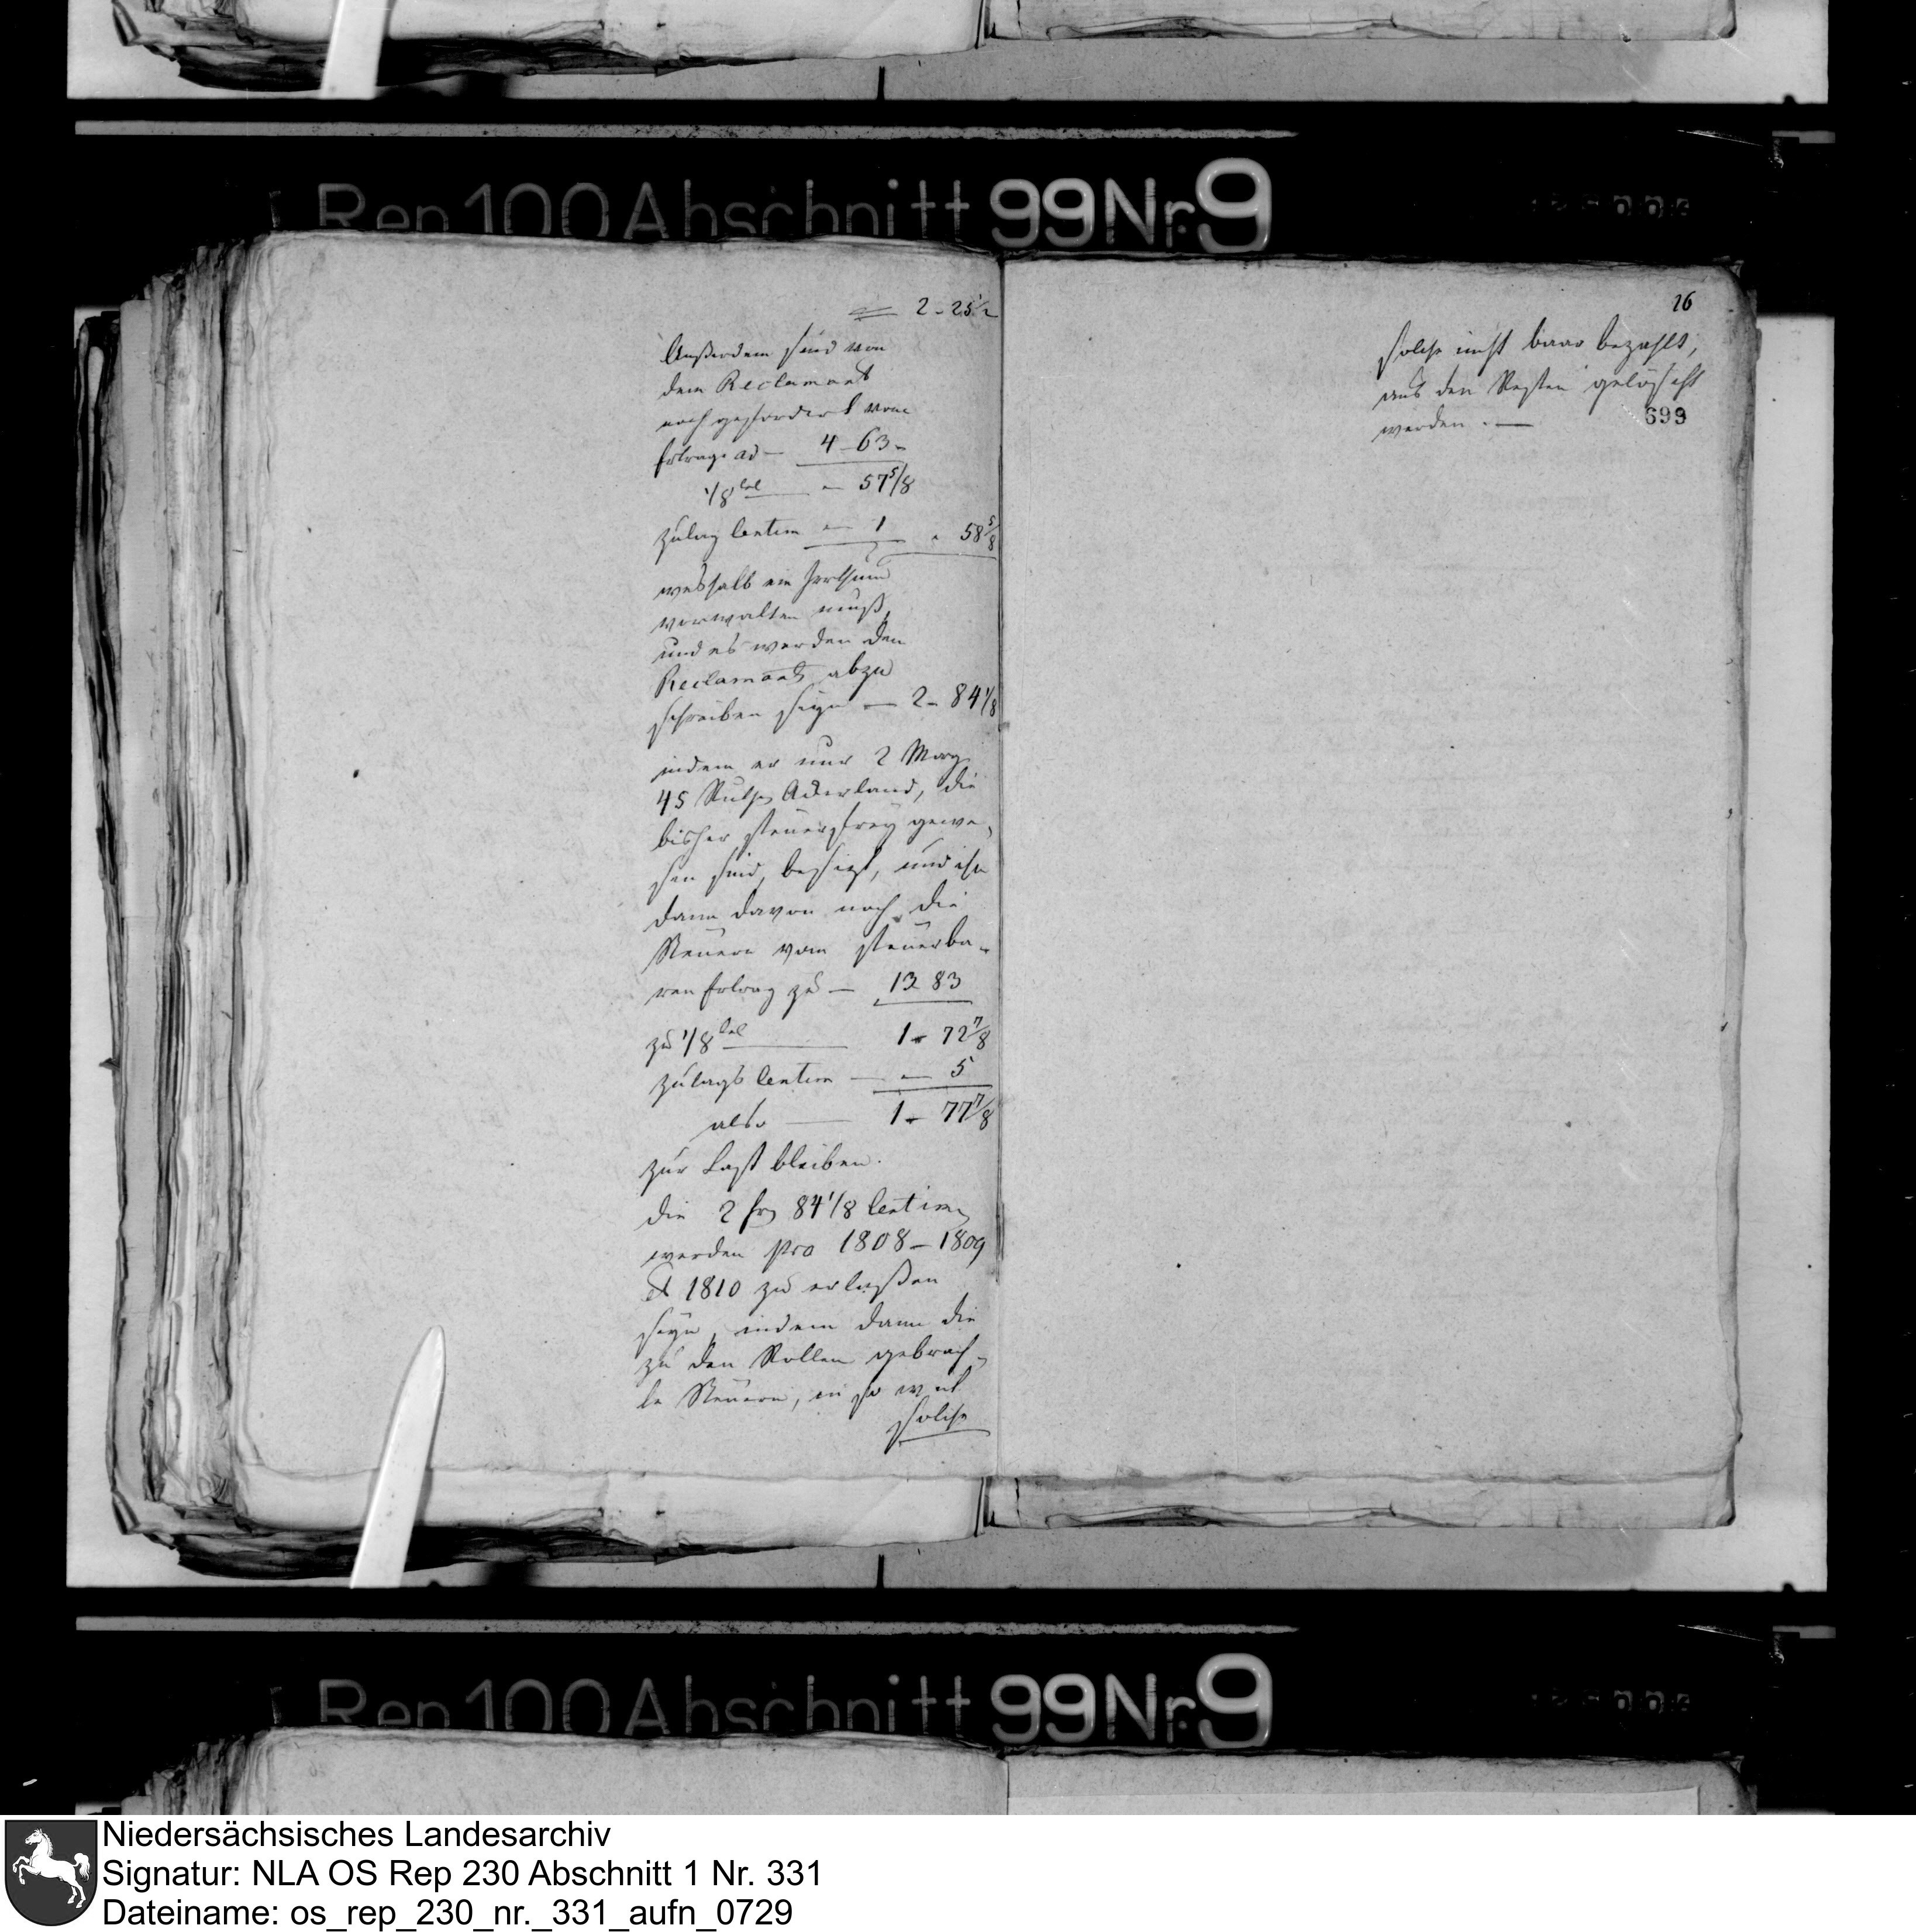 Rep 100 Abschnitt 99 Nr 9
= 2 - 25 1/2
Außerdem sind von
dem Reclamant
noch gefordert vom
Ertrage ad — 4 - 63 -
1/8tel — - 57 5/8
Zulag Centim — 1 - 58 5/8
weshalb ein Irrthum
vorwalten muß,
und es werden dem
Reclamant abzu
schreiben seyn — 2 - 84 1/8
indem er nur 2 Morg
45 Ruth Ackerland, die
bisher steuerfrey gewe-
sen sind, besitzt, und ihm
dann davon noch die
Steuern vom steuerba-
ren Ertrag zu — 13 83
zu 1/8tel — 1 - 72 7/8
Zulags Centim — - 5
also — 1 - 77 7/8
zur Last bleiben.
Die 2 fr 84 1/8 Centim
werden pro 1808 - 1809
et 1810 zu erlaßen
seyn, indem dann die
zu den Rollen gebrach-
te Steuern, in so weit
solche
26
solche nicht baar bezahlt,
aus den Resten gelöscht
werden. —
699
Rep 100 Abschnitt 99 Nr 9
Niedersächsisches Landesarchiv
Signatur: NLA OS Rep 230 Abschnitt 1 Nr. 331
Dateiname: os_rep_230_nr._331_aufn_0729